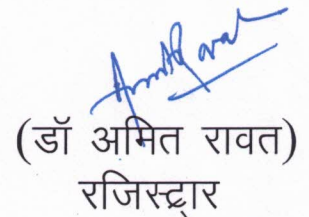 (डॉ अमित रावत)
रजिस्ट्रार